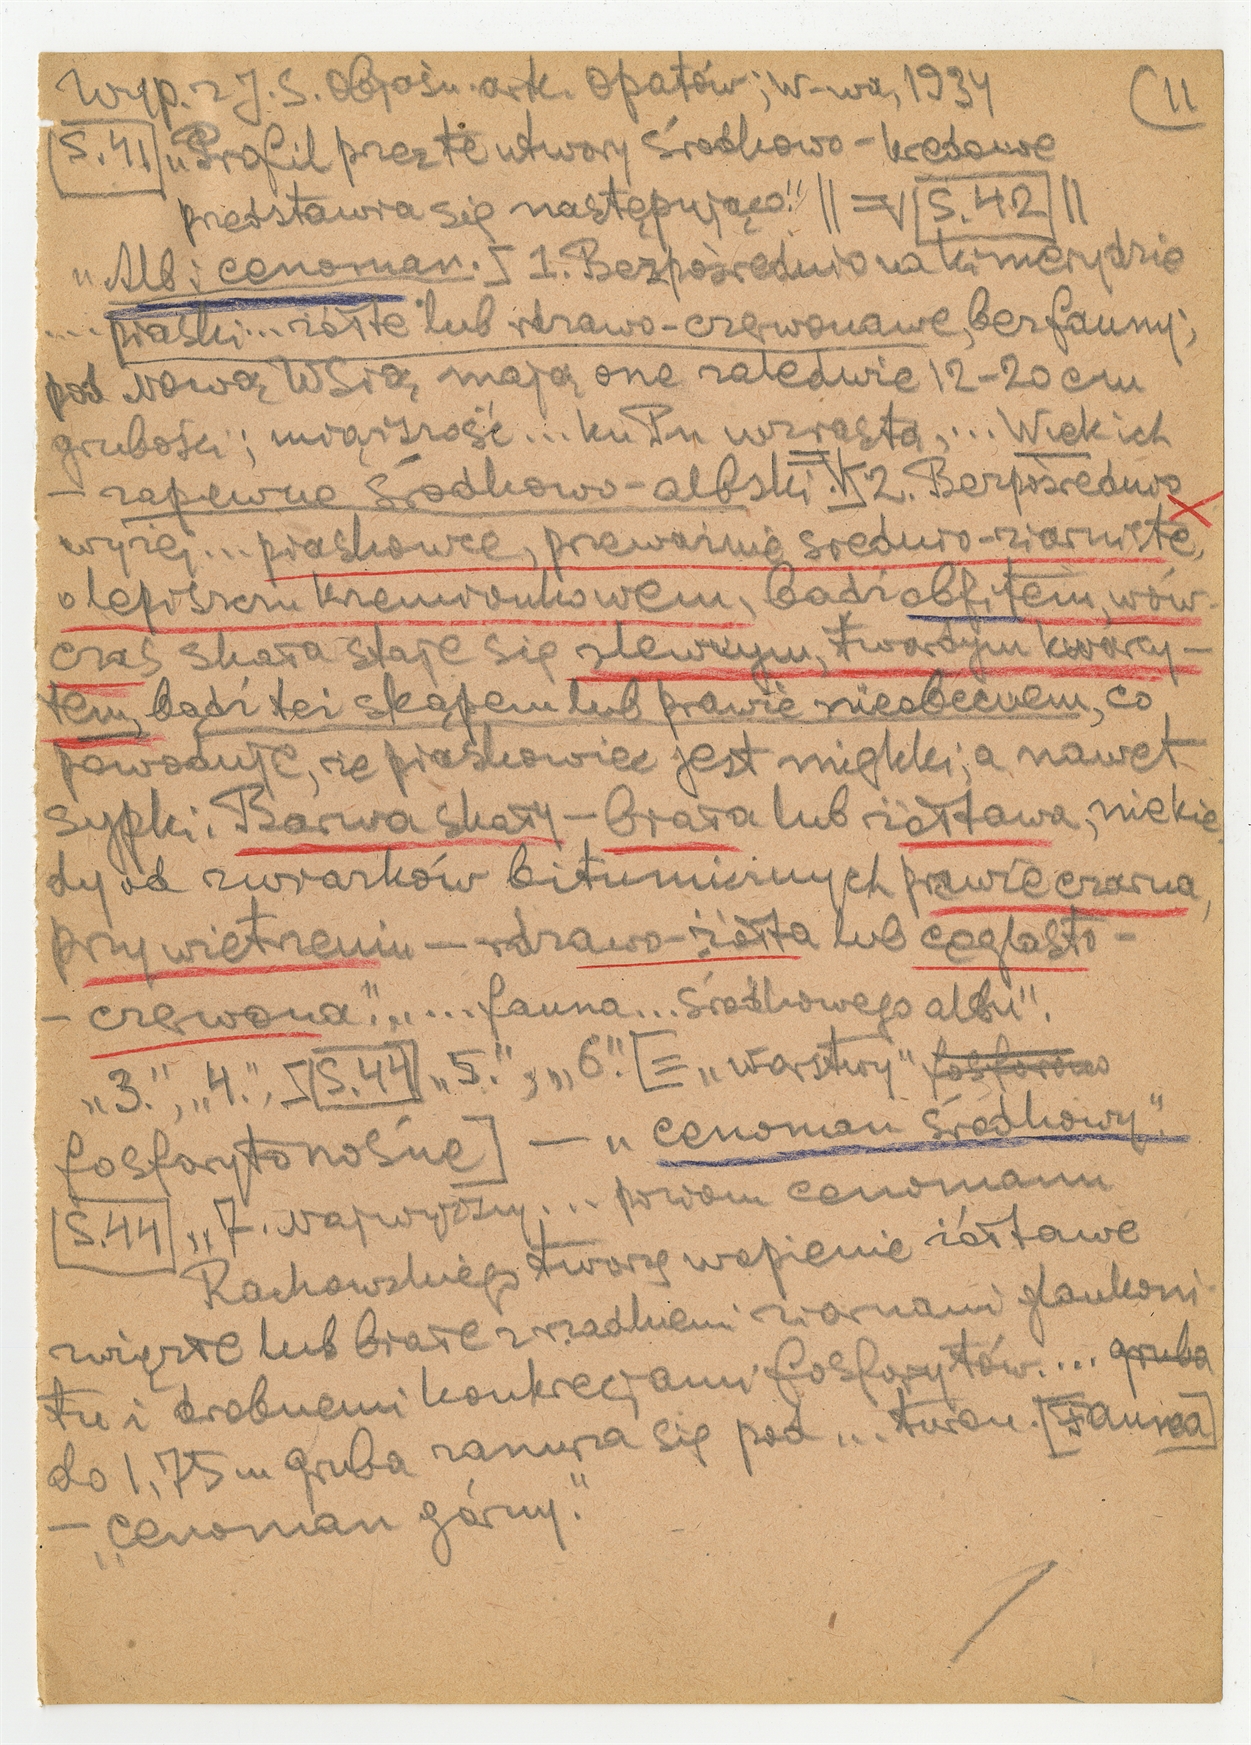 Wyp. z J. S. Objaśn. ark. Opatów; W-wa, 1934 (11
S. 41 „Profil przez te utwory środkowo-kredowe
przedstawia się następująco:" || = S. 42 ||
„Alb i cenoman. 1. Bezpośrednio na kimerydzie
... piaski... żółte lub rdzawo-czerwonawe, bez fauny;
pod Nową Wsią mają one zaledwie 12-20 cm
grubości; miąższość... ku Pn wzrasta,... Wiek ich
– zapewne środkowo-albski. 2. Bezpośrednio
wyżej... piaskowce, przeważnie średnio-ziarniste,
o lepiszczu krzemionkowem, bądź obfitem, wów-
czas skała staje się zlewnym, twardym kwarcy-
tem, bądź też skąpem lub prawie nieobecnem, co
powoduje, że piaskowiec jest miękki, a nawet
sypki. Barwa skały – biała lub żółtawa, niekie
dy od związków bitumicznych prawie czarna,
przy wietrzeniu – rdzawo-żółta lub ceglasto-
– czerwona". „... fauna... środkowego albu".
„3.", „4.", S. 44 „5.", „6." [= „warstwy" fosforono
fosforytonośne] – „cenoman środkowy".
S. 44 „7. Najwyższy... poziom cenomanu
Rachowskiego tworzą wapienie żółtawe
zwięzłe lub białe z rzadkiemi ziarnami glaukoni-
tu i drobnemi konkrecjami fosforytów.... gruba
do 1,75 m gruba zanurza się pod... turon. [Fauna]
– „Cenoman górny."